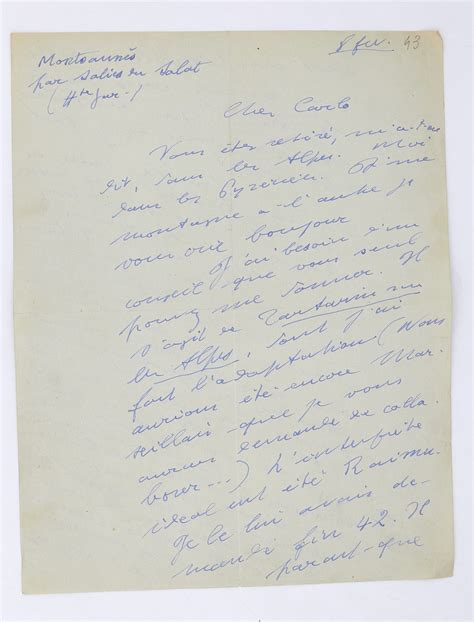 Montsaunès
par Salies du Salat
(Hte Gar.)
8 fev. 43
Cher Carlo
Vous êtes retiré, m'a-t-on
dit, dans les Alpes. Moi
dans les Pyrénées. D'une
montagne à l'autre je
vous crie bonjour
J'ai besoin d'un
conseil que vous seul
pouvez me donner. Il
s'agit de Tartarin sur
les Alpes, dont j'ai
fait l'adaptation. (Nous
aurions été encore Mar-
seillais que je vous
aurais demandé de colla-
borer...) L'interprète
idéal eut été Raimu.
Je le lui avais de-
mandé fin 42. Il
parait que